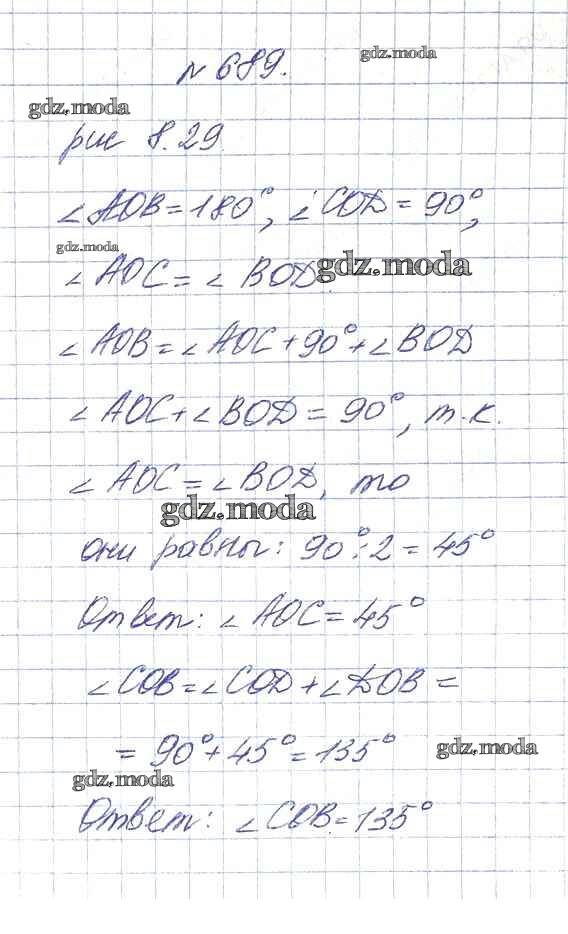 № 689.
gdz.moda
gdz.moda
рис 8.29
∠AOB = 180°, ∠COD = 90°,
gdz.moda
∠AOC = ∠BOD.
gdz.moda
∠AOB = ∠AOC + 90° + ∠BOD
∠AOC + ∠BOD = 90°, т.к.
∠AOC = ∠BOD, то
gdz.moda
они равны: 90° : 2 = 45°
Ответ: ∠AOC = 45°
∠COB = ∠COD + ∠DOB =
= 90° + 45° = 135°
gdz.moda
gdz.moda
Ответ: ∠COB = 135°